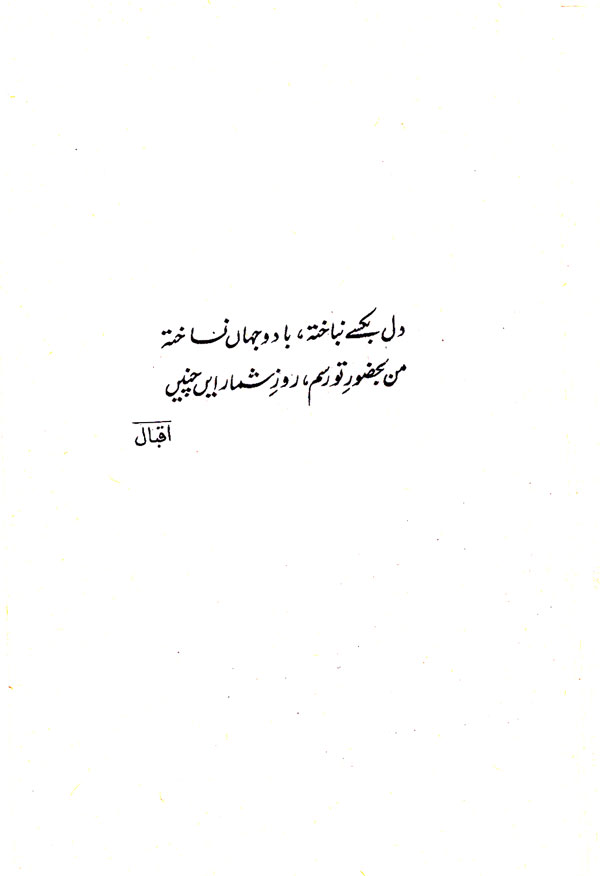 دل بکسے نباختۂ، بادو جہاں نساختۂ
من بحضورِ تو رسم، روزِ شمار ایں چنیں
اقبال